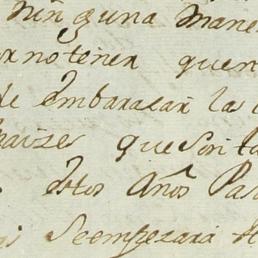 ninguna mane
or no tener quen
de embarasar la
maizes que son ta
estos años Pas
Se empezara